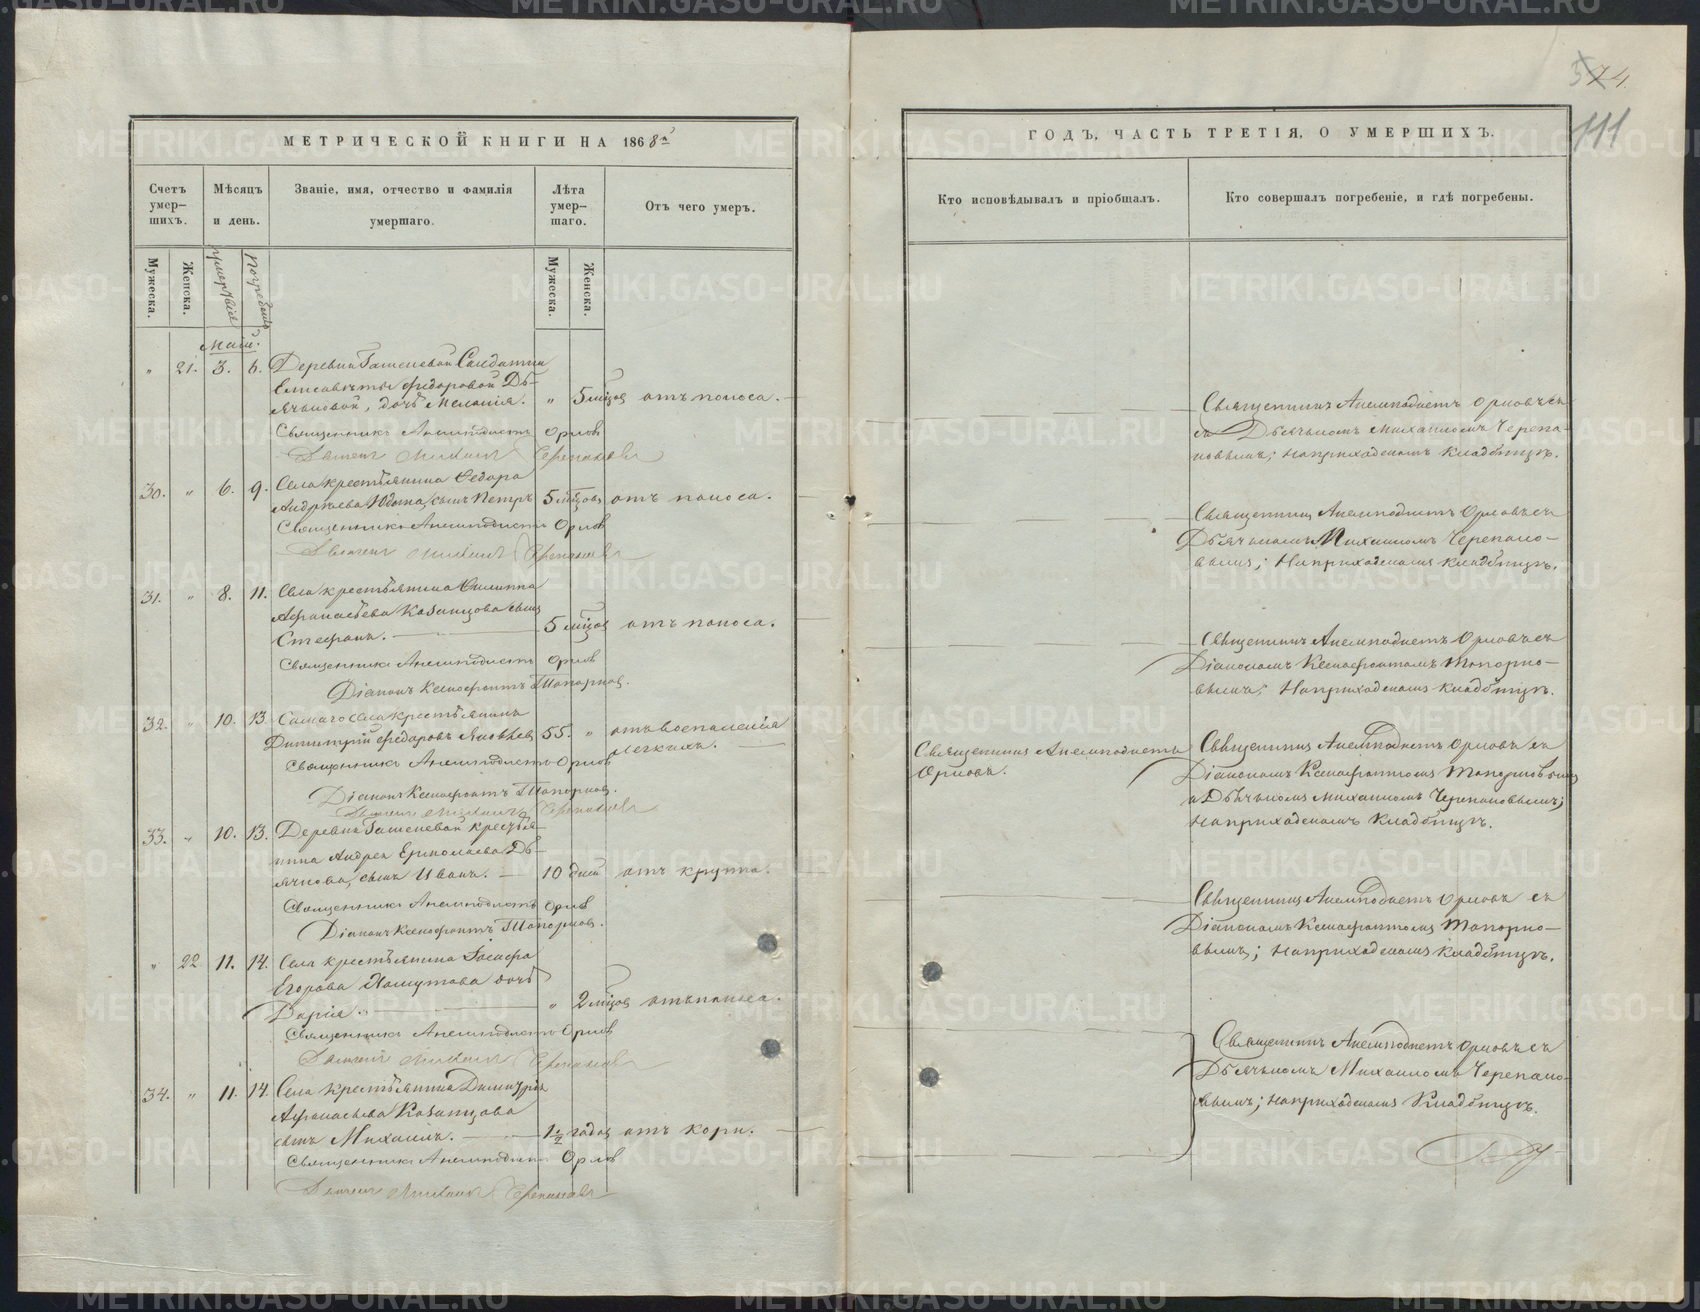 МЕТРИЧЕСКОЙ КНИГИ НА 1868й
Счетъ умер-шихъ.
Мѣсяцъ и день.
Званіе, имя, отчество и фамилія умершаго.
Лѣта умер-шаго.
Отъ чего умеръ.
Мужеска.
Женска.
Мужеска.
Женска.
Маій.
" 21. 3. 6. Деревни Гашеневой Солдатки
Елисаветы Федоровой Дь-
ячковой, дочь Меланія. " 5 мѣсяц отъ поноса.
Священникъ Анемподистъ Орловъ
Дьячекъ Михаилъ Черепановъ
30. " 6. 9. Села крестьянина Федора
Андреева Юдина, сынъ Петръ 5 мѣсяцовъ отъ поноса.
Священникъ Анемподистъ Орловъ
Дьячекъ Михаилъ Черепановъ
31. " 8. 11. Села крестьянина Филиппа
Афанасьева Казанцова сынъ
Стефанъ. 5 мѣсяц отъ поноса.
Священникъ Анемподистъ Орловъ
Діаконъ Ксенофонтъ Топорковъ.
32. " 10. 13 Самаго села крестьянинъ
Димитрій Федоровъ Яковлев 55. " отъ воспаленія
легкихъ.
Священникъ Анемподистъ Орловъ
Діаконъ Ксенофонтъ Топорковъ.
Дьячекъ Михаилъ Черепановъ
33. " 10. 13. Деревни Гашеневой крестья-
нина Андрея Ермолаева Дь-
ячкова, сынъ Иванъ. 10 дней отъ крупа.
Священникъ Анемподистъ Орловъ
Діаконъ Ксенофонтъ Топорковъ.
" 22 11. 14. Села крестьянина Іосафа
Егорова Хомутова дочь
Дарія. " 2 мѣсяц отъ поноса.
Священникъ Анемподистъ Орловъ
Дьячекъ Михаилъ Черепановъ
34. " 11. 14. Села крестьянина Димитрія
Афанасьева Казанцова
сынъ Михаилъ. 1 1/2 годов отъ кори.
Священникъ Анемподистъ Орловъ
Дьячекъ Михаилъ Черепановъ
111
ГОДЪ, ЧАСТЬ ТРЕТІЯ, О УМЕРШИХЪ.
Кто исповѣдывалъ и пріобщалъ.
Кто совершалъ погребеніе, и гдѣ погребены.
Священникъ Анемподистъ Орловъ съ
Дьячькомъ Михаиломъ Черепа-
новымъ; На приходскомъ кладбищѣ.
Священникъ Анемподистъ Орловъ съ
Дьячькомъ Михаиломъ Черепано-
вымъ; На приходскомъ кладбищѣ.
Священникъ Анемподистъ Орловъ съ
Діакономъ Ксенофонтомъ Топорко-
вымъ; На приходскомъ кладбищѣ.
Священникъ Анемподистъ
Орловъ.
Священникъ Анемподистъ Орловъ съ
Діакономъ Ксенофонтомъ Топорковымъ
и Дьячькомъ Михаиломъ Черепановымъ;
На приходскомъ кладбищѣ.
Священникъ Анемподистъ Орловъ съ
Діакономъ Ксенофонтомъ Топорко-
вымъ; На приходскомъ кладбищѣ.
Священникъ Анемподистъ Орловъ съ
Дьячькомъ Михаиломъ Черепано-
вымъ; На приходскомъ Кладбищѣ.
METRIKI.GASO-URAL.RU